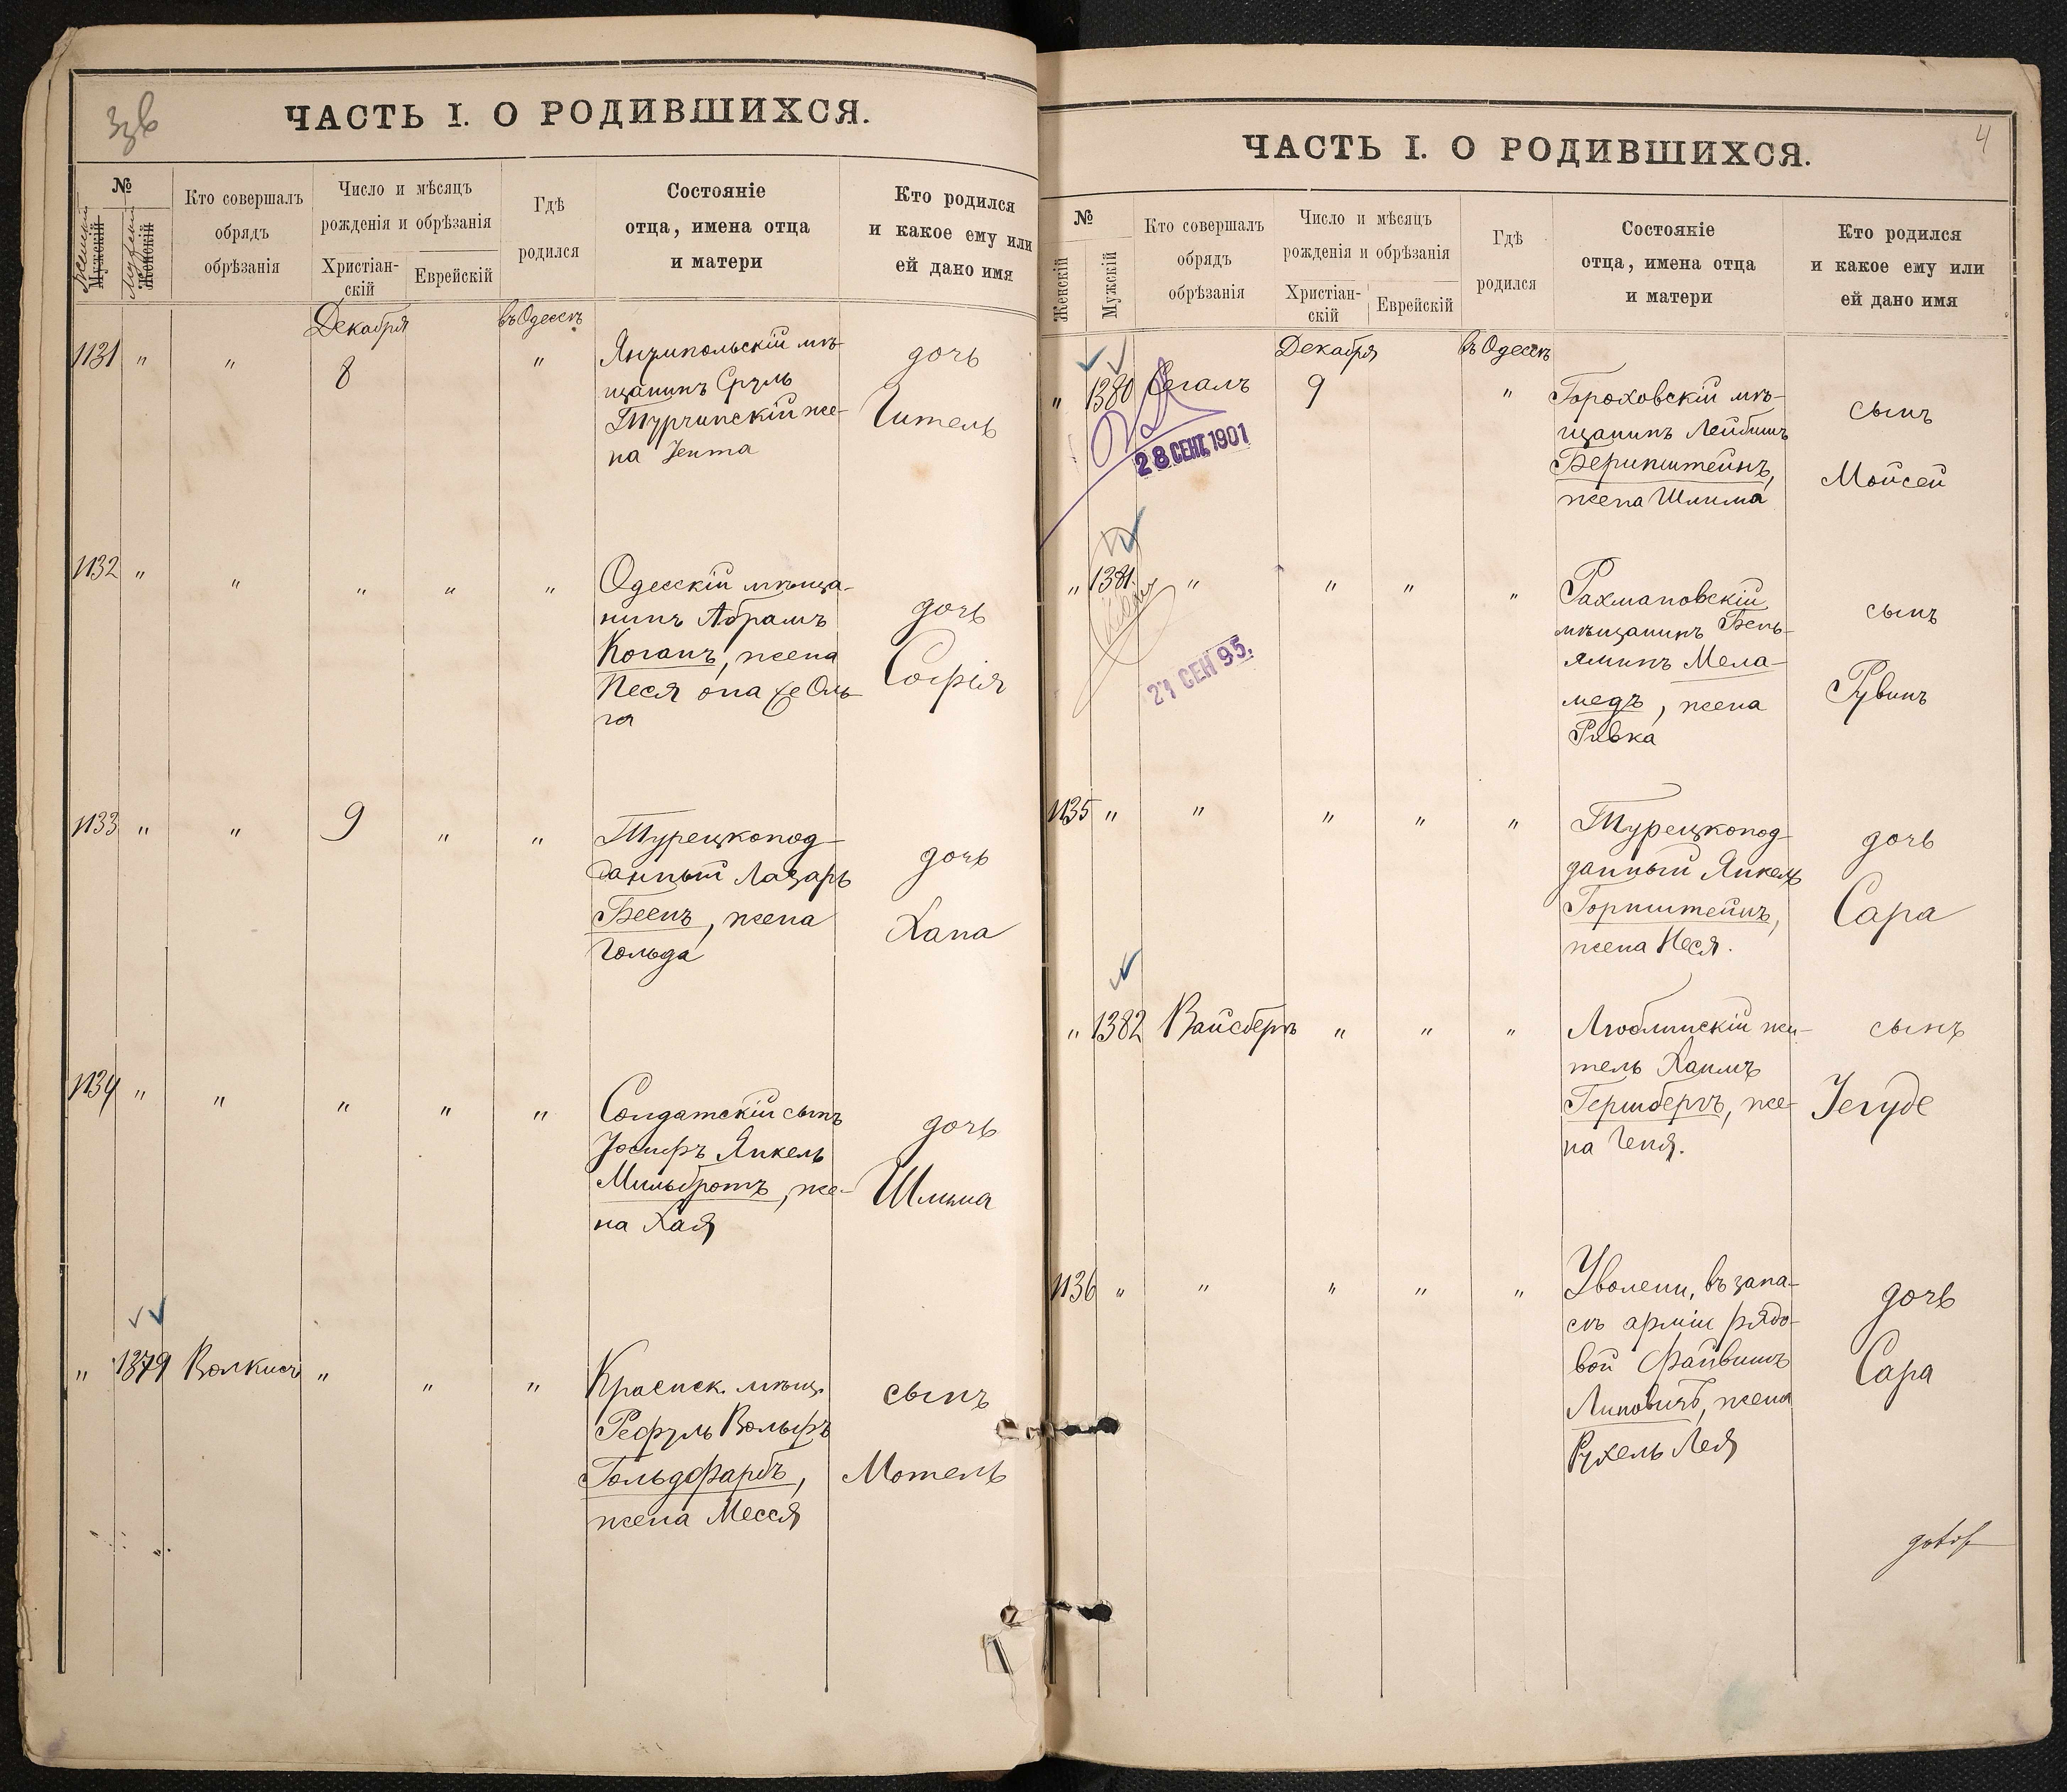 ЧАСТЬ I. О РОДИВШИХСЯ.
№
Женскій
Мужскій
Мужскій
Женскій
Кто совершалъ
обрядъ
обрѣзанія
Число и мѣсяцъ
рожденія и обрѣзанія
Христіан-
скій
Еврейскій
Гдѣ
родился
Состояніе
отца, имена отца
и матери
Кто родился
и какое ему или
ей дано имя
Декабря
въ Одессѣ
1131 " " 8 "
Янъмпольскій мѣ-
щанинъ Сруль
Турчинскій же-
на Зента
дочь
Гитель
1132 " " " " "
Одесскій мѣща-
нинъ Абрамъ
Коганъ, жена
Песя она же Оль-
га
дочь
Софія
1133 " " 9 " "
Турецкопод-
данный Лазарь
Беенъ, жена
Гольда
дочь
Хана
1134 " " " " "
Солдатскій сынъ
Іосифъ Янкель
Мильбротъ, же-
на Хая
дочь
Шлима
" 1379 Волкисъ " " "
Красиск. мѣщ.
Рефуль Вольфъ
Гольдфарбъ,
жена Месся
сынъ
Мотель
4
ЧАСТЬ I. О РОДИВШИХСЯ.
№
Женскій
Мужскій
Кто совершалъ
обрядъ
обрѣзанія
Число и мѣсяцъ
рожденія и обрѣзанія
Христіан-
скій
Еврейскій
Гдѣ
родился
Состояніе
отца, имена отца
и матери
Кто родился
и какое ему или
ей дано имя
Декабря
въ Одессѣ
" 1380 Сегалъ 9 "
28 СЕНТ. 1901
Гороховскій мѣ-
щанинъ Лейбишъ
Беринштейнъ,
жена Шлима
сынъ
Мойсей
" 1381 " " " "
27 СЕН 95.
Рахмановскій
мѣщанинъ Бень-
яминъ Мела-
медъ, жена
Ривка
сынъ
Рувинъ
1135 " " " " "
Турецкопод-
данный Янкель
Горнштейнъ,
жена Неся.
дочь
Сара
" 1382 Вайсбергъ " " "
Люблинскій жи-
тель Хаимъ
Гершбергъ, же-
на Геня.
сынъ
Іегуде
1136 " " " " "
Уволен. въ запа-
съ арміи рядо-
вой Файвишъ
Липовичъ, жена
Рухель Лея
дочь
Сара